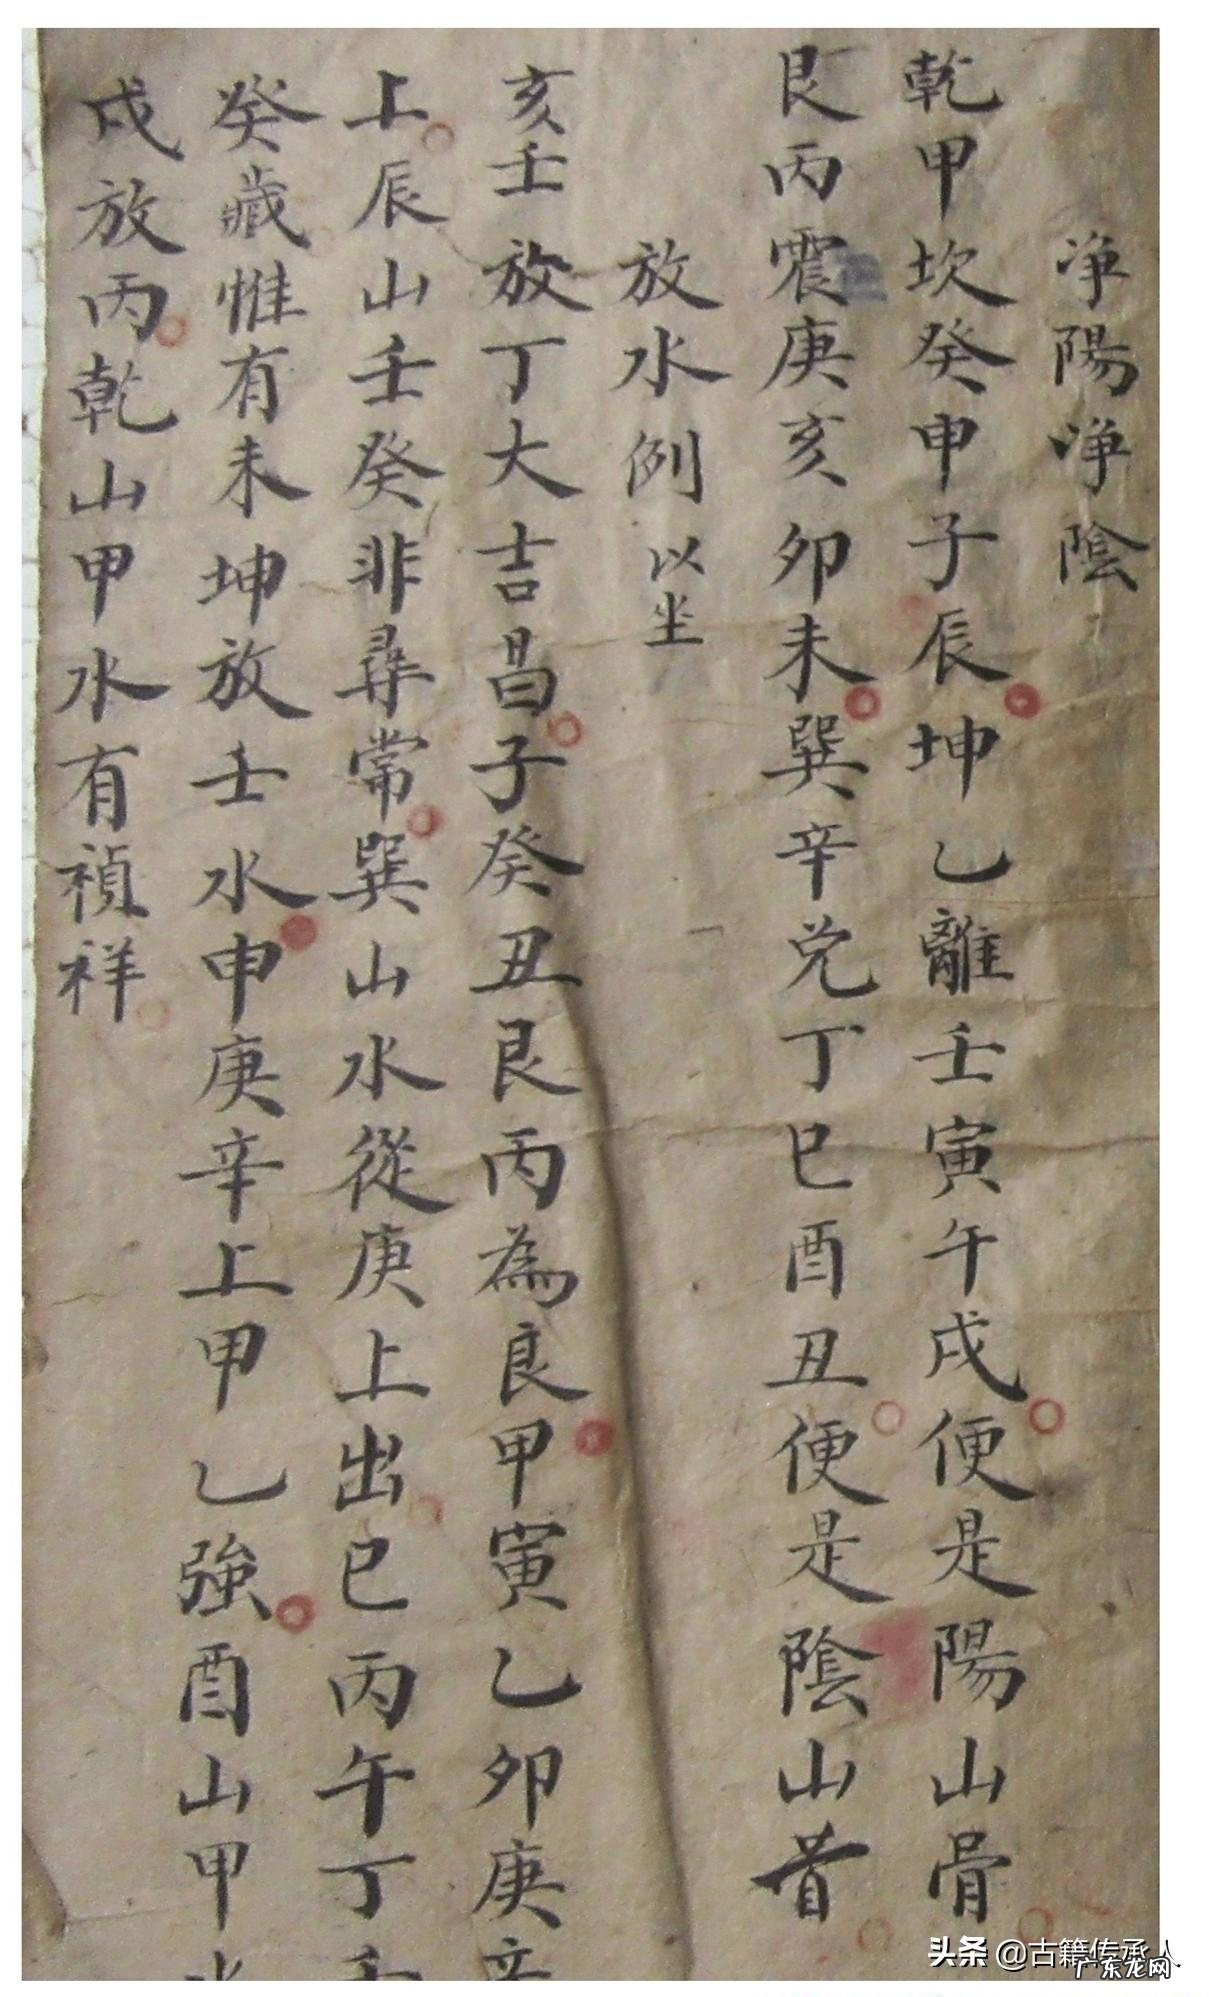 淨陽淨陰
乾甲坎癸申子辰坤乙離壬寅午戌便是陽山骨
艮丙震庚亥卯未巽辛兌丁巳酉丑便是陰山首
放水例以坐
亥壬放丁大吉昌子癸丑艮丙為良甲寅乙卯庚辛
上辰山壬癸非尋常巽山水從庚上出巳丙午丁壬
癸藏惟有未坤放壬水申庚辛上甲乙強酉山甲水
戌放丙乾山甲水有禎祥
头条@古籍传承人
广东龙网